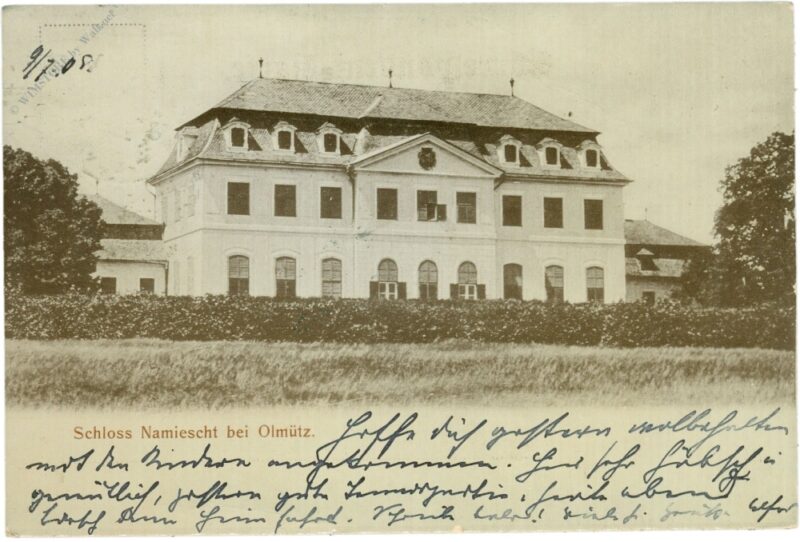 9/7 05.
© WIMSTORE by Walzner
Schloss Namiescht bei Olmütz.
Hoffe dich gestern wolbehalten
mit den Kindern angekommen. Hier sehr hübsch, u
gemütlich, gestern gute Tennispartie, heute abend
dann Heimfahrt. Schreibe bald! Viele